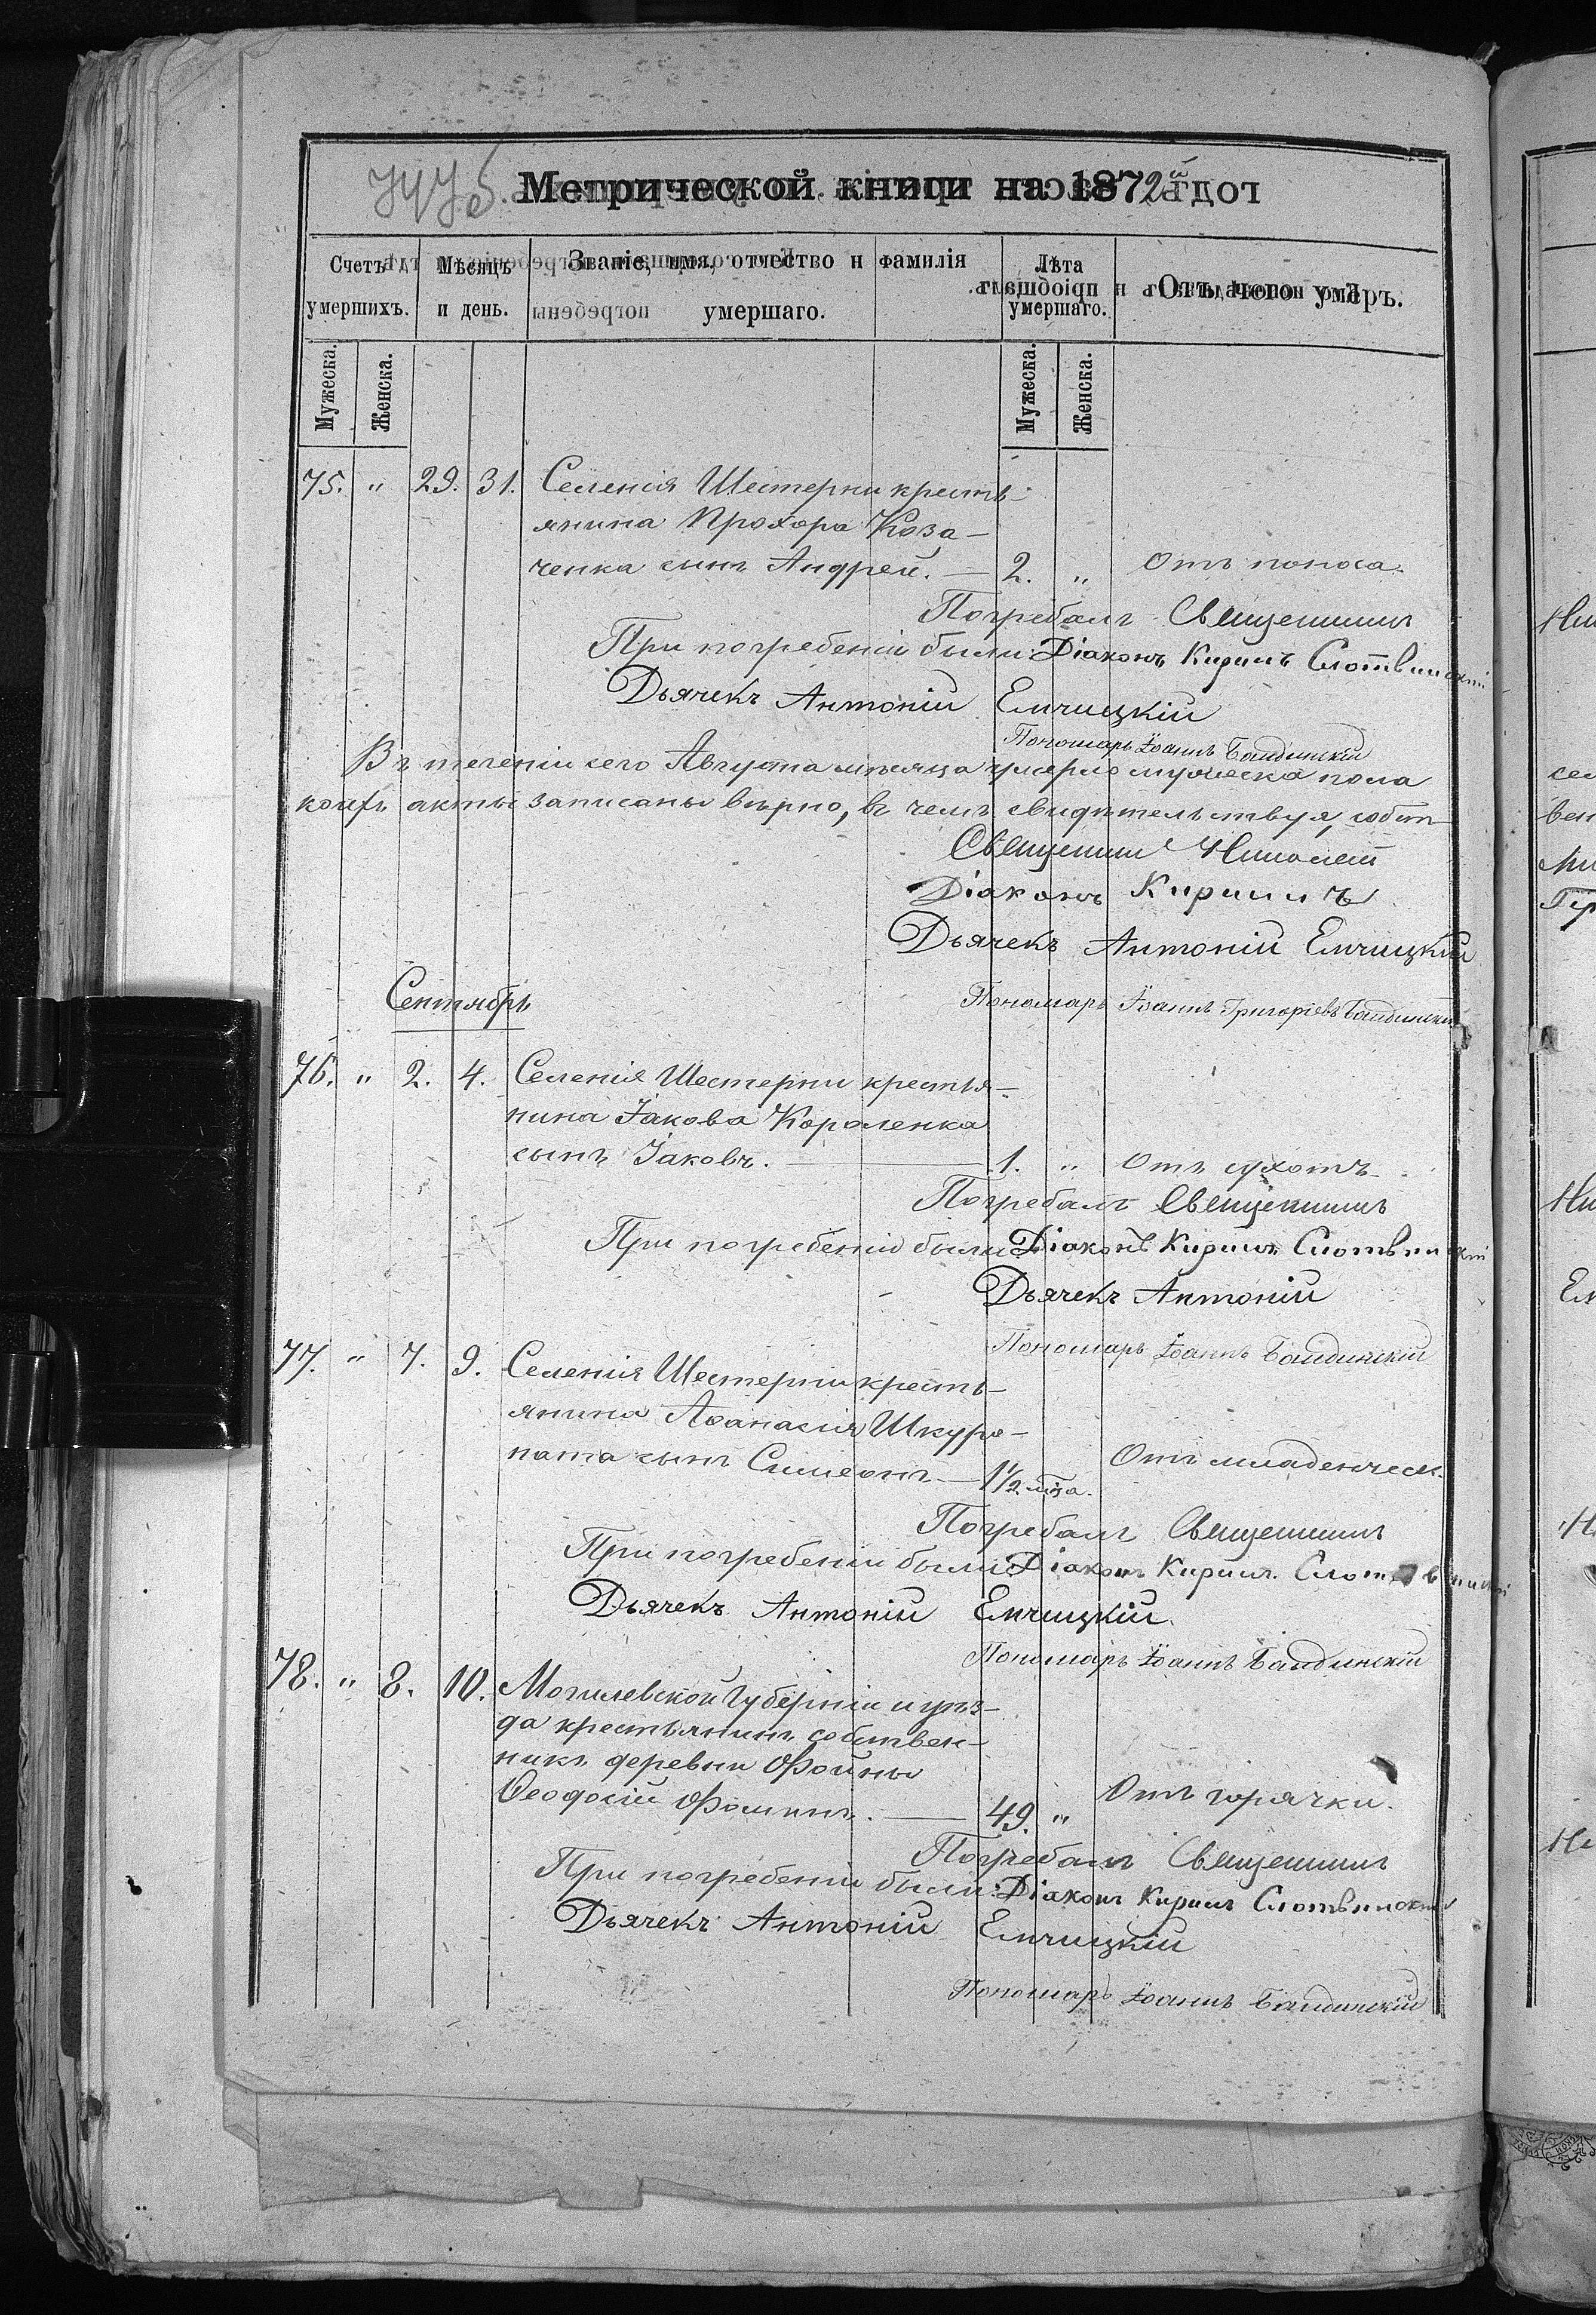 Метрической книги на 1872й
Счетъ умершихъ.
Мѣсяцъ и день.
Званіе, имя, отчество и фамилія умершаго.
Лѣта умершаго.
Отъ чего умеръ.
Мужеска. Женска. Мужеска. Женска.
75. " 29. 31. Селенія Шестерни кресть-
янина Прохора Коза-
ченка сынъ Андрей. — 2. " Отъ поноса.
Погребалъ Священникъ
При погребеніи были: Діаконъ Кирилъ Слотвинскій
Дьячекъ Антоній Емчицкій
Пономарь Іоаннъ
Въ теченіи сего Августа мѣсяца умерло мужеска пола
акты записаны вѣрно, въ чемъ свидѣтельствуя,
Священникъ Николай
Діаконъ Кириллъ
Дьячекъ Антоній Емчицкій
Пономарь Іоаннъ Григоріевъ
Сентябрь
76. " 2. 4. Селенія Шестерни крестья-
нина Іакова Короленка
сынъ Іаковъ. — 1. " Отъ сухотъ
Погребалъ Священникъ
При погребеніи были Діаконъ Кирилъ Слотвинскій
Дьячекъ Антоній
Пономарь Іоаннъ
77. " 7. 9. Селенія Шестерни кресть-
янина Аѳанасія Шкуро-
пата сынъ Симеонъ — 1½ мца. Отъ младенческ.
Погребалъ Священникъ
При погребеніи были Діаконъ Кирил. Слотвинскій
Дьячекъ Антоній Емчицкій
Пономарь Іоаннъ
78. " 8. 10. Могилевской Губерніи и уѣз-
да крестьянинъ собствен-
никъ деревни Фойны
Ѳеодосій Фоминъ. — 49. " Отъ горячки.
Погребалъ Священникъ
При погребеніи были: Діаконъ Кирилъ Слотвинскій
Дьячекъ Антоній Емчицкій
Пономарь Іоаннъ